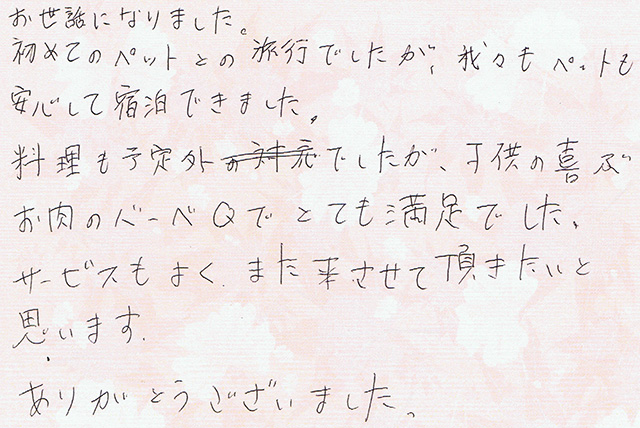 お世話になりました。
初めてのペットとの旅行でしたが、我々もペットも
安心して宿泊できました。
料理も予定外の対応でしたが、子供の喜ぶ
お肉のバーベQでとても満足でした、
サービスもよく、また来させて頂きたいと
思います.
ありがとうございました。